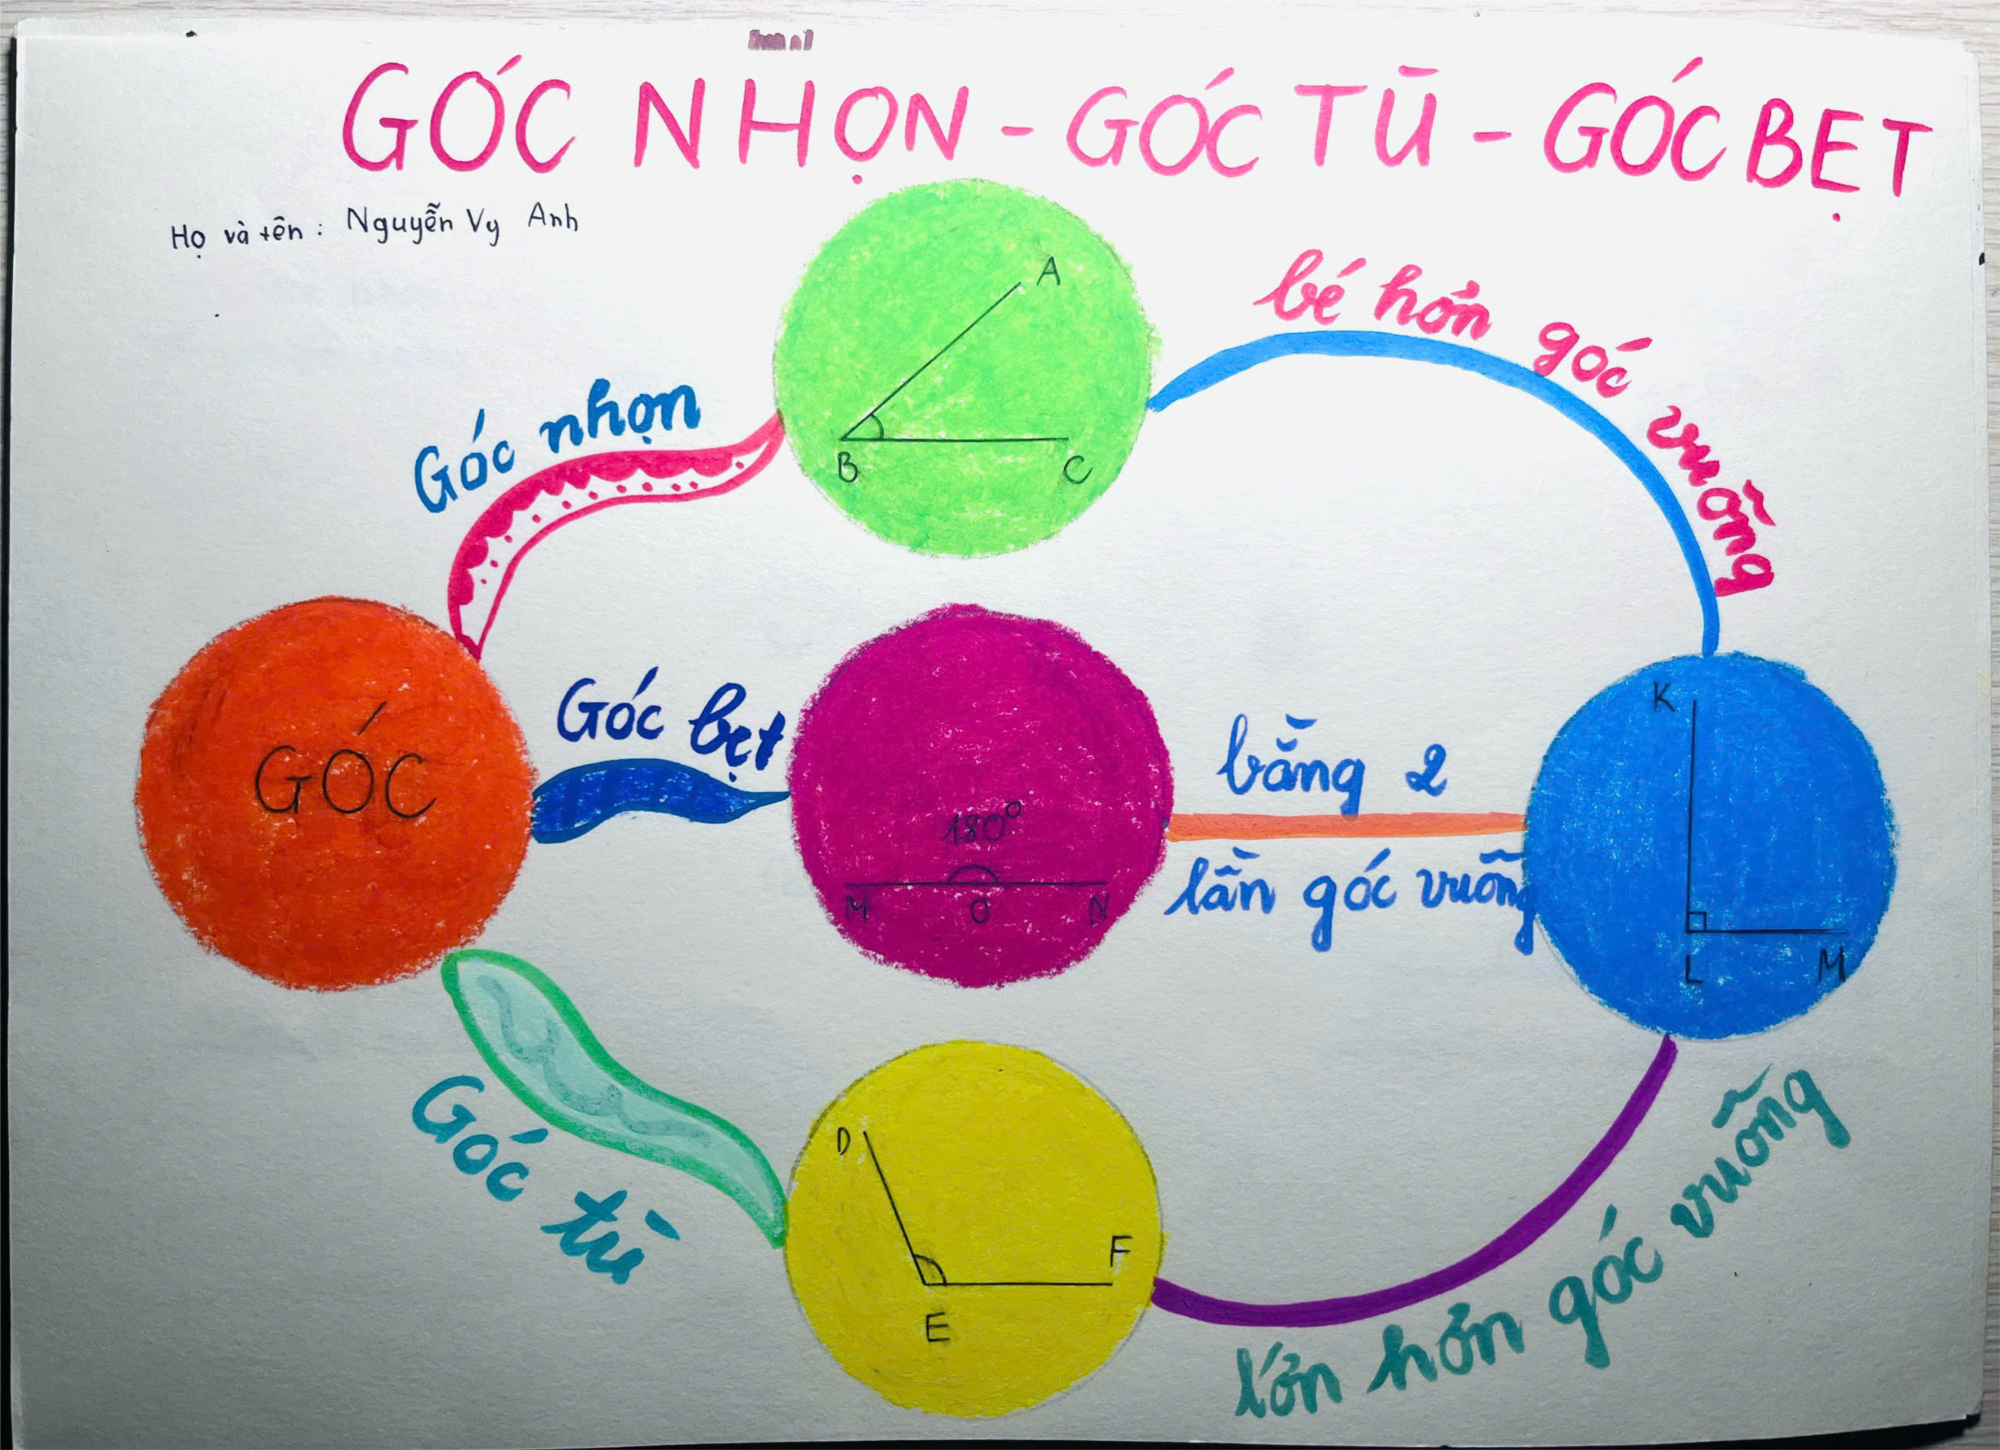 GÓC NHỌN - GÓC TÙ - GÓC BẸT
Họ và tên : Nguyễn Vy Anh
Góc nhọn
A
B
C
bé hơn góc vuông
GÓC
Góc bẹt
180°
M
O
N
bằng 2
lần góc vuông
K
L
M
Góc tù
D
E
F
lớn hơn góc vuông